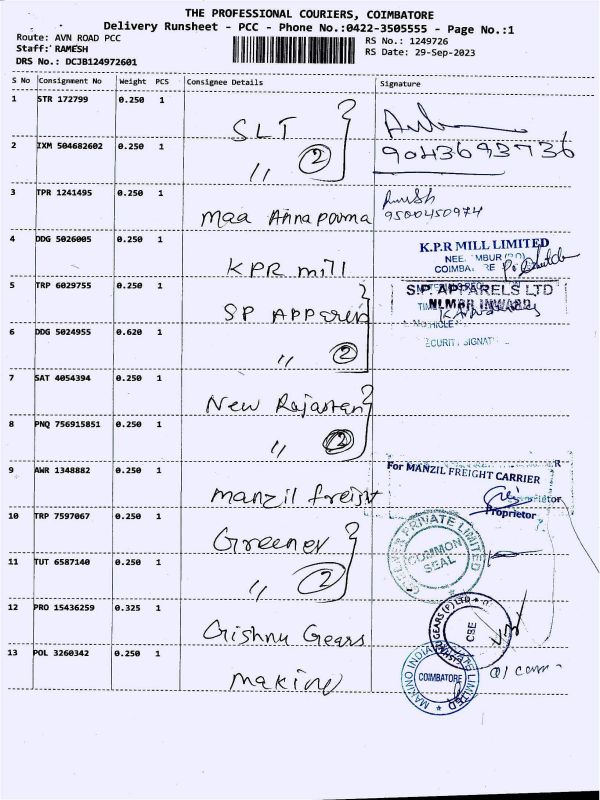 THE PROFESSIONAL COURIERS, COIMBATORE
Delivery Runsheet - PCC - Phone No.:0422-3505555 - Page No.:1
Route: AVN ROAD PCC
RS No.: 1249726
Staff: RAMESH
RS Date: 29-Sep-2023
DRS No.: DCJB124972601
S No Consignment No Weight PCS Consignee Details Signature
1 STR 172799 0.250 1
SLT
2 IXM 504682602 0.250 1
9043693736
〃 2
3 TPR 1241495 0.250 1
9500450974
Maa Annapourna
4 DDG 5026005 0.250 1
K.P.R MILL LIMITED
KPR mill
5 TRP 6029755 0.250 1
S.P. APPARELS LTD
NLMBR INWARD
SP APParels
6 DDG 5024955 0.620 1
〃 2
7 SAT 4054394 0.250 1
New Rajastan
8 PNQ 756915851 0.250 1
〃 2
9 AWR 1348882 0.250 1
For MANZIL FREIGHT CARRIER
Proprietor
manzil freight
10 TRP 7597067 0.250 1
PRIVATE LIMITED
Greener
COMMON
SEAL
11 TUT 6587140 0.250 1
〃 2
12 PRO 15436259 0.325 1
GEARS (P) LTD
CBE
Crishnu Gears
13 POL 3260342 0.250 1
MAKINO INDIA PRIVATE LIMITED
COIMBATORE
Makino